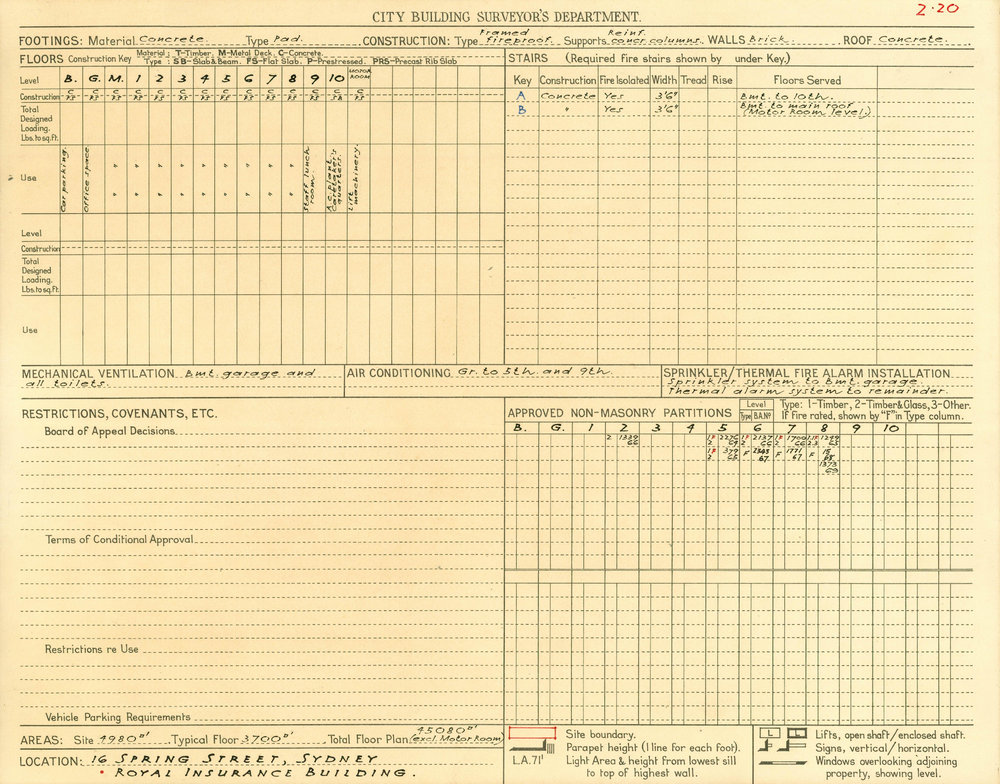 2·20
CITY BUILDING SURVEYOR'S DEPARTMENT.
FOOTINGS: Material Concrete. Type Pad. CONSTRUCTION: Type Framed fireproof. Supports Reinf. concr. columns. WALLS Brick. ROOF Concrete.
FLOORS Construction Key Material; T-Timber, M-Metal Deck, C-Concrete.
Type : SB-Slab & Beam. FS-Flat Slab. P-Prestressed. PRS-Precast Rib Slab
Level B. G. M. 1 2 3 4 5 6 7 8 9 10 MOTOR ROOM
Construction C/FS C/FS C/FS C/FS C/FS C/FS C/FS C/FS C/FS C/FS C/FS C/FS C/FS
Total
Designed
Loading.
Lbs. to sq. ft.
Use Car parking. Office space " " " " " " " " " Staff lunch room. A.c. plant. Caretaker's quarters. Lift machinery.
Level
Construction
Total
Designed
Loading.
Lbs. to sq. ft.
Use
STAIRS (Required fire stairs shown by under Key.)
Key Construction Fire Isolated Width Tread Rise Floors Served
A Concrete Yes 3'6" Bmt. to 10th.
B " Yes 3'6" Bmt. to main roof
(Motor Room level.)
MECHANICAL VENTILATION Bmt. garage and
all toilets.
AIR CONDITIONING Gr. to 5th. and 9th.
SPRINKLER/THERMAL FIRE ALARM INSTALLATION
Sprinkler system to Bmt. garage.
Thermal alarm system to remainder.
RESTRICTIONS, COVENANTS, ETC.
Board of Appeal Decisions
Terms of Conditional Approval
Restrictions re Use
Vehicle Parking Requirements
APPROVED NON-MASONRY PARTITIONS Level Type B.A.Nº Type: 1-Timber, 2-Timber & Glass, 3-Other.
If Fire rated, shown by "F" in Type column.
B. G. 1 2 3 4 5 6 7 8 9 10
2 1339/66 1F/2 2276/64 1F/2 2137/66 1F/2 1700/66 1249/65
1F/2 379/65 F 1343/67 F 1771/67 F 15/68
1373/69
AREAS: Site 4980□' Typical Floor 3700□' Total Floor Plan 45080□' (excl. Motor Room)
LOCATION: 16 SPRING STREET, SYDNEY
• ROYAL INSURANCE BUILDING.
Site boundary.
Parapet height (1 line for each foot).
L.A. 71' Light Area & height from lowest sill
to top of highest wall.
L L Lifts, open shaft/enclosed shaft.
Signs, vertical/horizontal.
Windows overlooking adjoining
property, showing level.